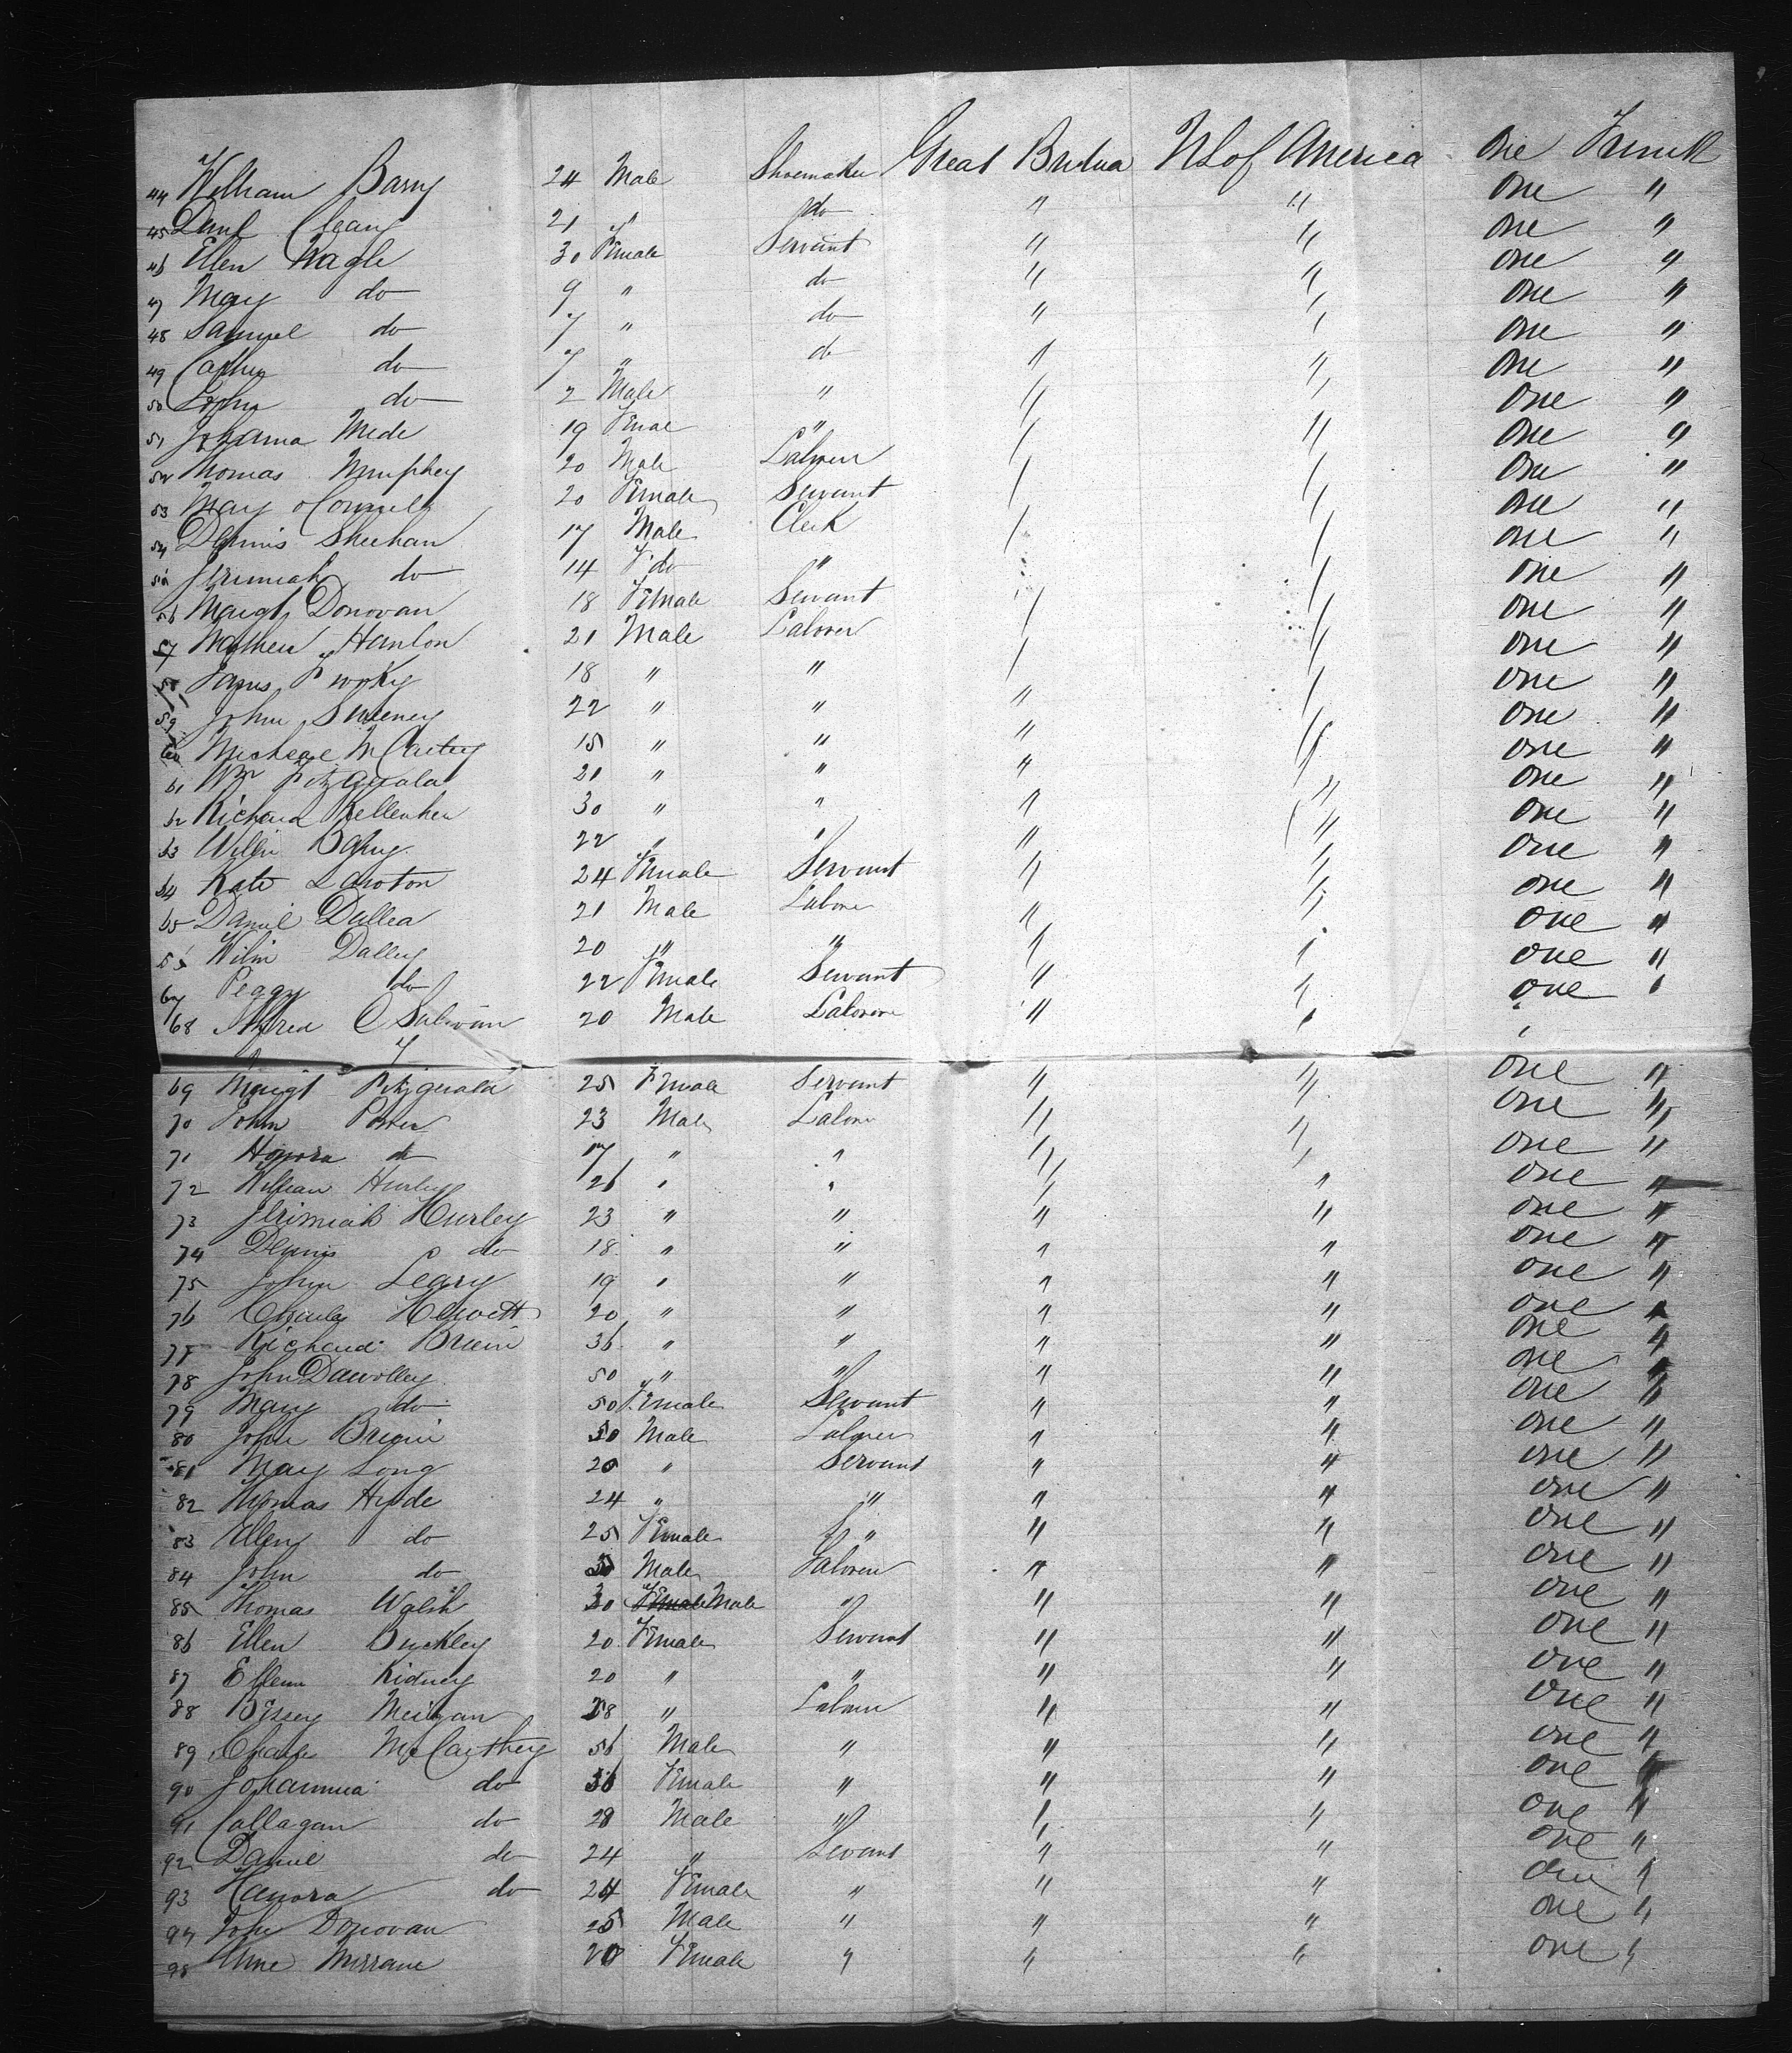 44 William Barry 24 Male Shoemaker Great Britain US of America One Trunk
45 Danl Cleary 21 " do " " One "
46 Ellen Nagle 30 Female Servant " " One "
47 Mary do 9 " do " " One "
48 Samuel do 7 " do " " One "
49 Cathe do 7 " do " " One "
50 John do 2 Male " " " One "
51 Johanna Mede 19 Femae " " " One "
52 Thomas Murphey 20 Male Laborer " " One "
53 Mary 20 Female Servant " " One "
54 Dennis Sheehan 17 Male Clerk " " One "
55 Jerimiah do 14 do " " " One "
56 Margt Donovan 18 Female Servant " " One "
57 Mathew Hanlon 21 Male Laborer " " One "
58 James 18 " " " " One "
59 John Sweeney 22 " " " " One "
60 Micheal McCartey 15 " " " " One "
61 Wm Fitzgerald 21 " " " " One "
62 Richard Kelleher 30 " " " " One "
63 Willm 22 " " " " One "
64 Kate Lawton 24 Female Servant " " One "
65 Daniel Dullea 21 Male Laborer " " One "
Wilm Dalley 20 " " " " One "
67 Peggy do 22 Female Servant " " One "
68 Alfred O Sulivan 20 Male Laborer " " One "
69 Margt Fitzgerald 25 Female Servant " " One "
70 John Porter 23 Male Laborer " " One "
71 Honora do 17 " " " " One "
72 William Hurley 26 " " " " One "
73 Jerimiah Hurley 23 " " " " One "
74 Dennis do 18 " " " " One "
75 John Leary 19 " " " " One "
76 Charles Hewett 20 " " " " One "
77 Richard 36 " " " " One "
78 John Dawolley 50 " " " " One "
79 Mary do 50 Female Servant " " One "
80 John 30 Male Laborer " " One "
81 Mary Long 20 " Servant " " One "
82 Thomas Hyde 24 " " " " One "
83 Ellen do 25 Female " " " One "
84 John do Male Laborer " " One "
85 Thomas Walsh 30 Female Male " " " One "
86 Ellen Buckley 20 Female Servant " " One "
87 Ellenn Kidney 20 " " " " One "
88 Bessey 28 " Laborer " " One "
89 Charle McCarthey 56 Male " " " One "
90 Johannua do 56 Female " " " One "
91 Callagan do 28 Male " " " One "
92 Daniel do 24 " Servant " " One "
93 Hanora do 24 Female " " " One "
94 John Donovan 25 Male " " " One "
95 Anne 20 Female " " " One "